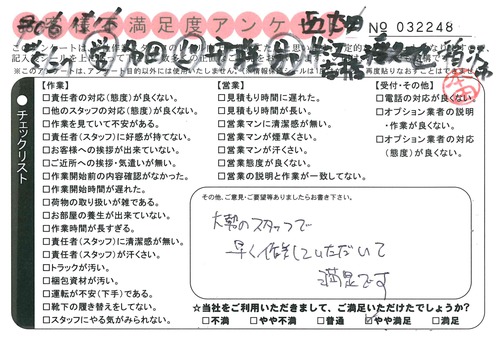 お客様不満足度アンケート
No 032248
チェックリスト
【作業】
□責任者の対応（態度）が良くない。
□他のスタッフの対応（態度）が良くない。
□作業を見ていて不安がある。
□責任者（スタッフ）に好感が持てない。
□お客様への挨拶が出来ていない。
□ご近所への挨拶・気遣いが無い。
□作業開始前の内容確認がなかった。
□作業開始時間が遅れた。
□荷物の取り扱いが雑である。
□お部屋の養生が出来ていない。
□作業時間が長すぎる。
□責任者（スタッフ）に清潔感が無い。
□責任者（スタッフ）が汗くさい。
□トラックが汚い。
□梱包資材が汚い。
□運転が不安（下手）である。
□靴下の履き替えをしてない。
□スタッフにやる気がみられない。
【営業】
□見積もり時間に遅れた。
□見積もり時間が長い。
□営業マンに清潔感が無い。
□営業マンが煙草くさい。
□営業マンが汗くさい。
□営業態度が良くない。
□営業の説明と作業が一致してない。
【受付・その他】
□電話の対応が良くない。
□オプション業者の説明
・作業が良くない。
□オプション業者の対応
（態度）が良くない。
その他、ご意見・ご要望等ありましたらお書き下さい。
大勢のスタッフで
早く作業していただいて
満足です
☆当社をご利用いただきまして、ご満足いただけたでしょうか？
□不満 □やや不満 □普通 □やや満足 □満足